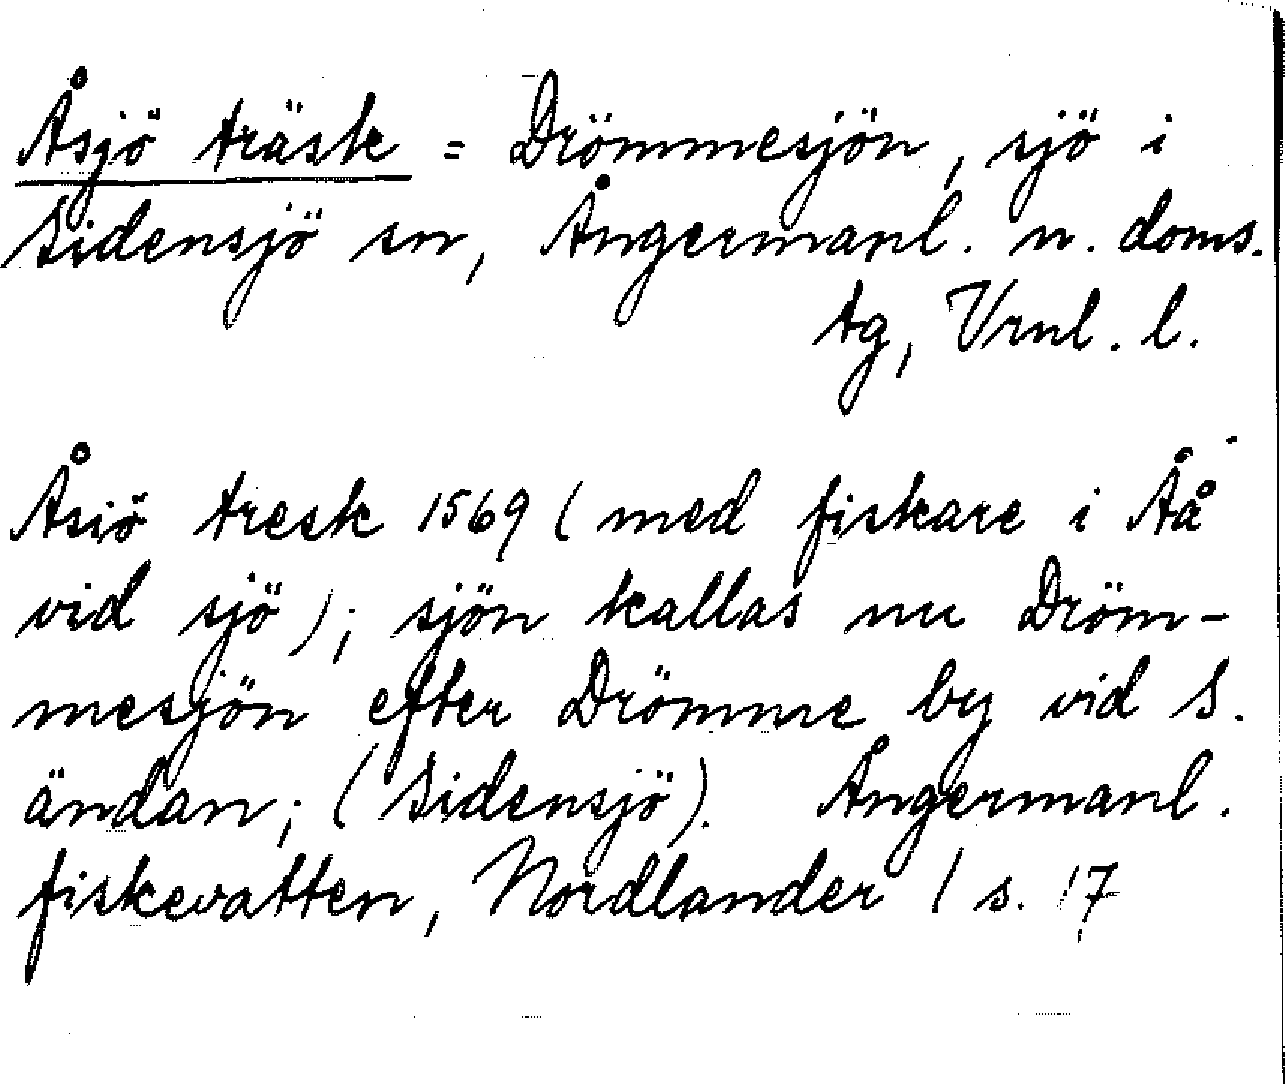 Åsjö träsk = Drömmesjön, sjö i
Sidensjö sn, Ångermanl. n. doms.
tg, Vrnl. l.
Åsiö tresk 1569 (med fiskare i Åå
vid sjö); sjön kallas nu Dröm-
mesjön efter Drömme by vid S.
ändan; (Sidensjö). Ångermanl.
fiskevatten, Nordlander 1 s. 17